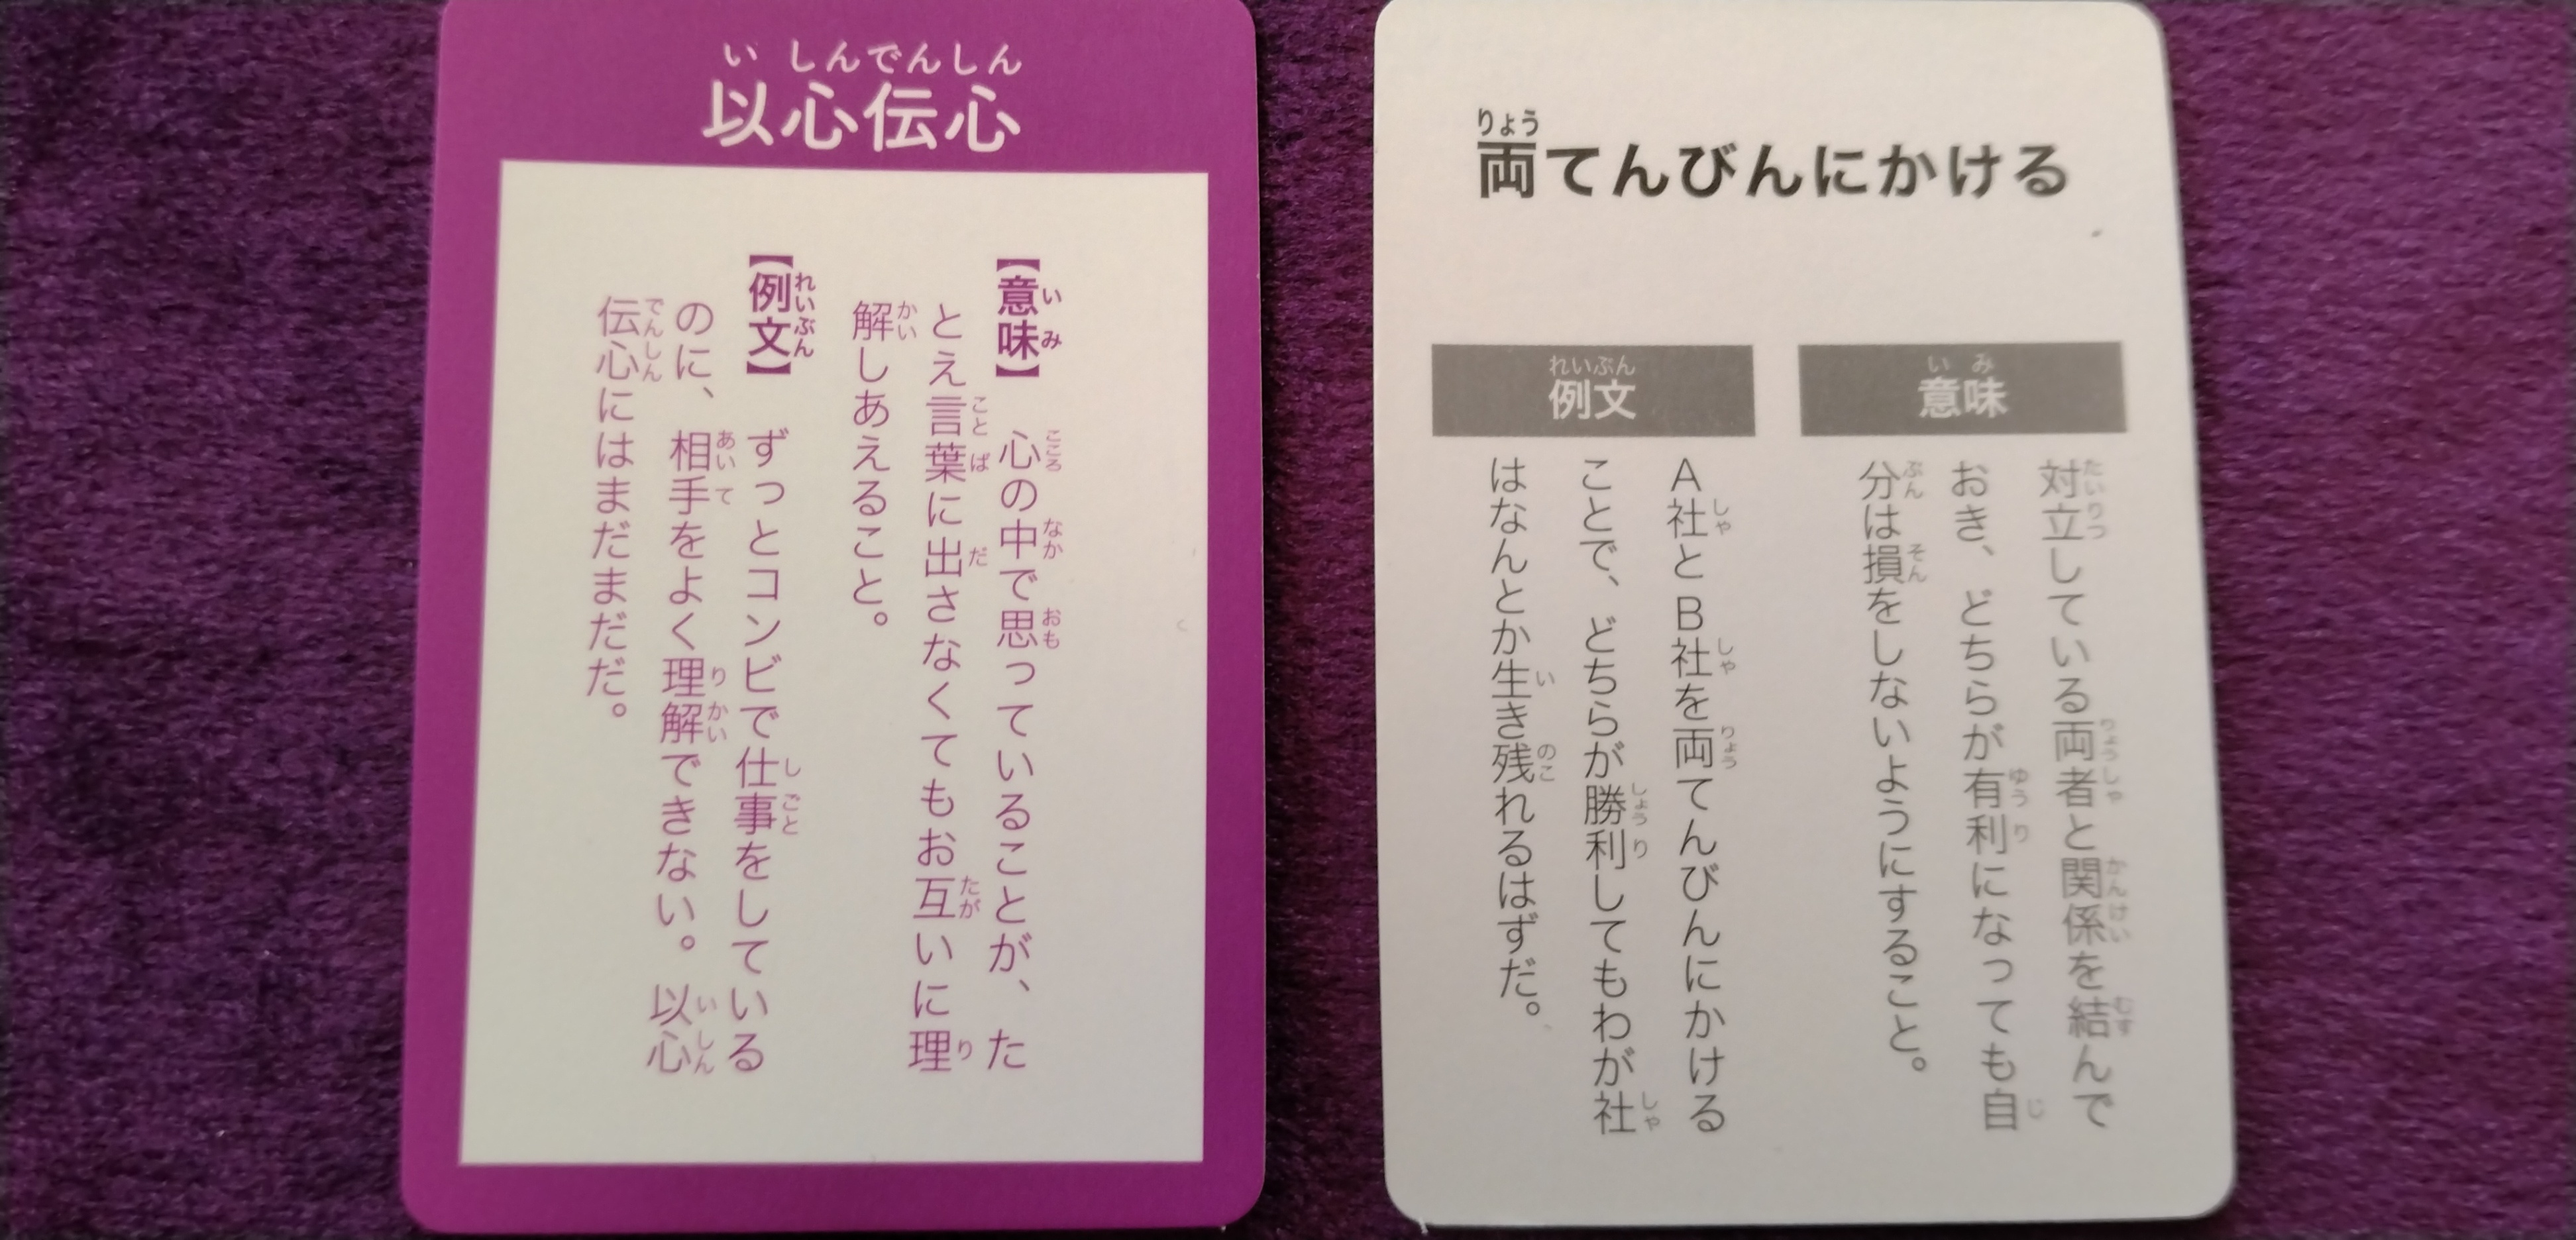 以心伝心
いしんでんしん
【意味】 心の中で思っていることが、た
とえ言葉に出さなくてもお互いに理
解しあえること。
【例文】 ずっとコンビで仕事をしている
のに、相手をよく理解できない。以心
伝心にはまだまだだ。
両てんびんにかける
りょう
意味
いみ
対立している両者と関係を結んで
おき、どちらが有利になっても自
分は損をしないようにすること。
例文
れいぶん
A社とB社を両てんびんにかける
ことで、どちらが勝利してもわが社
はなんとか生き残れるはずだ。